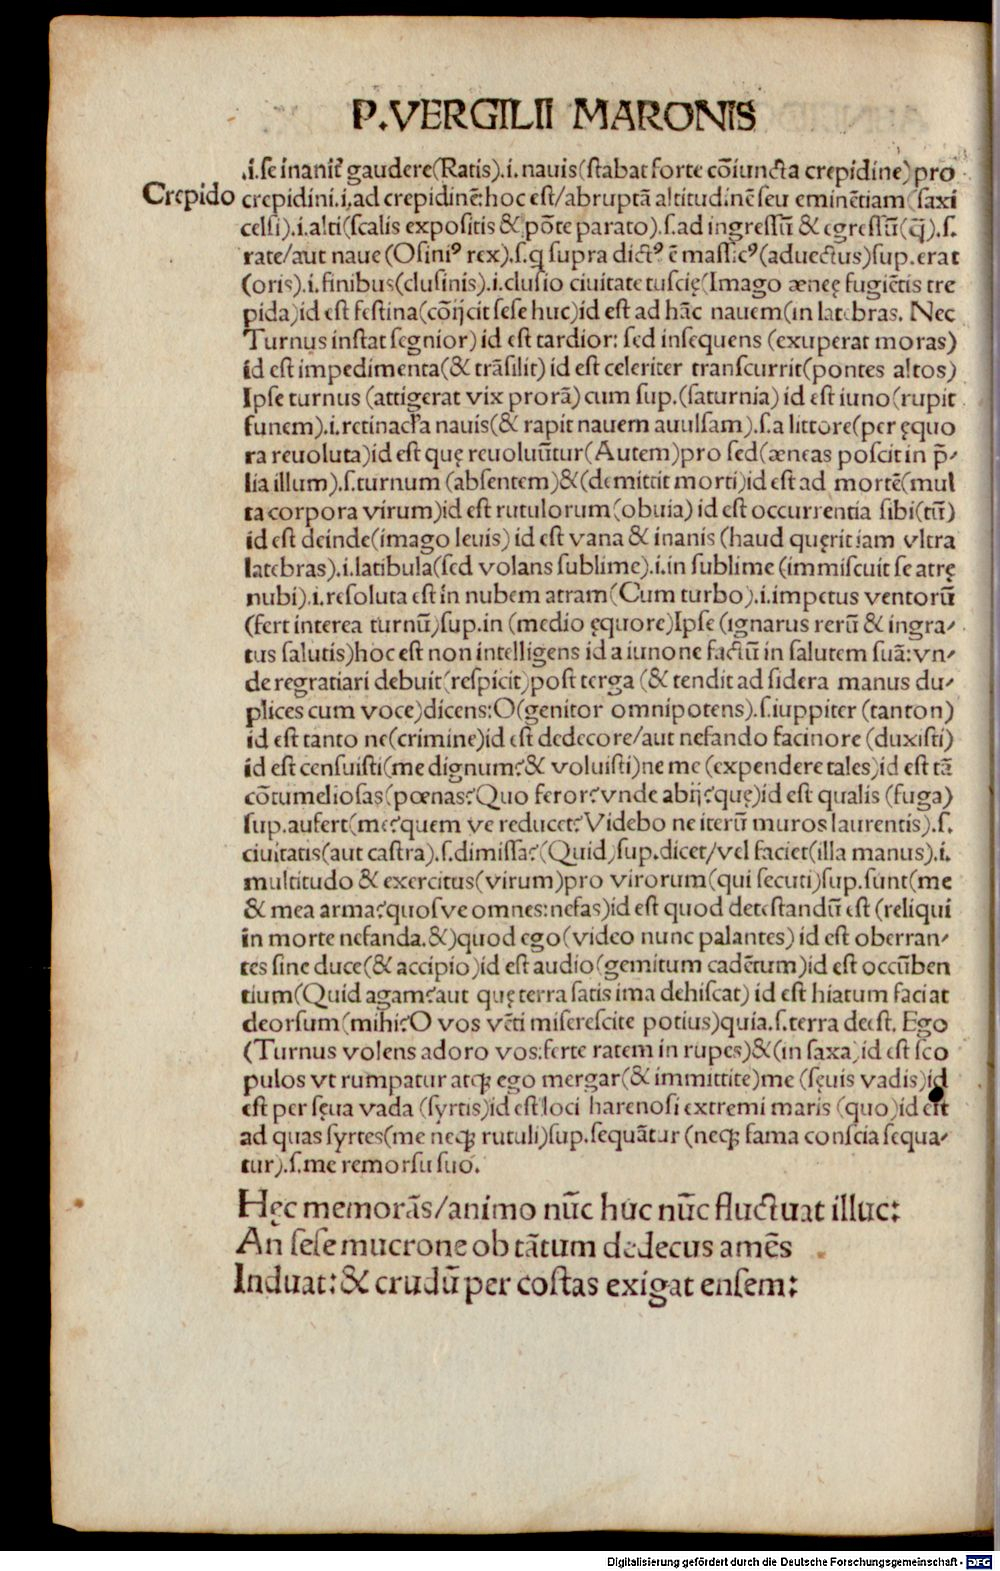 P.VERGILII MARONIS
.i.ſe inanit᷑ gaudere(Ratis).i. nauis(ſtabat forte cōiuncta crepidine) pro
Crepido
crepidini.i.ad crepidinē:hoc eſt/abruptā altitudinē ſeu eminētiam (ſaxi
celſi).i.alti(ſcalis expoſitis & pōte parato).ſ.ad ingreſſū & egreſſū(q̄).ſ.
rate/aut naue (Oſiniꝰ rex).ſ.q ſupra dictꝰ ē maſſicꝰ(aduectus)ſup.erat
(oris).i.finibus(cluſinis).i.cluſio ciuitate tuſcię(Imago æneę fugiētis tre
pida)id eſt feſtina(cōijcit ſeſe huc)id eſt ad hāc nauem(in latebras. Nec
Turnus inſtat ſegnior) id eſt tardior: ſed inſequens (exuperat moras)
id eſt impedimenta(& trāſilit) id eſt celeriter tranſcurrit(pontes altos)
Ipſe turnus (attigerat vix prorā) cum ſup.(ſaturnia) id eſt iuno(rupit
funem).i.retinacła nauis(& rapit nauem auulſam).ſ.a littore(per ęquo
ra reuoluta)id eſt quę reuoluūtur(Autem)pro ſed(æneas poſcit in p̄-
lia illum).ſ.turnum (abſentem)&(demittit morti)id eſt ad mortē(mul
ta corpora virum)id eſt rutulorum(obuia) id eſt occurrentia ſibi(tū)
id eſt deinde(imago leuis) id eſt vana & inanis (haud quęrit iam vltra
latebras).i.latibula(ſed volans ſublime).i.in ſublime (immiſcuit ſe atrę
nubi).i.reſoluta eſt in nubem atram(Cum turbo).i.impetus ventorū
(fert interea turnū)ſup.in (medio ęquore)Ipſe (ignarus rerū & ingra-
tus ſalutis)hoc eſt non intelligens id a iunone factū in ſalutem ſuā:vn-
de regratiari debuit(reſpicit)poſt terga (& tendit ad ſidera manus du-
plices cum voce)dicens:O(genitor omnipotens).ſ.iuppiter (tanton)
id eſt tanto ne(crimine)id eſt dedecore/aut nefando facinore (duxiſti)
id eſt cenſuiſti(me dignum?& voluiſti)ne me (expendere tales)id eſt tā
cōtumelioſas(pœnas?Quo feror?vnde abij?quę)id eſt qualis (fuga)
ſup.aufert(me?quem ve reducet?Videbo ne iterū muros laurentis).ſ.
ciuitatis(aut caſtra).ſ.dimiſſa?(Quid)ſup.dicet/vel faciet(illa manus).i.
multitudo & exercitus(virum)pro virorum(qui ſecuti)ſup.ſunt(me
& mea arma?quoſve omnes:nefas)id eſt quod deteſtandū eſt (reliqui
in morte nefanda.&)quod ego(video nunc palantes) id eſt oberran-
tes ſine duce(& accipio)id eſt audio(gemitum cadētum)id eſt occūben
tium(Quid agam?aut quę terra ſatis ima dehiſcat) id eſt hiatum faciat
deorſum(mihi?O vos vēti miſereſcite potius)quia.ſ.terra deeſt. Ego
(Turnus volens adoro vos:ferte ratem in rupes)&(in ſaxa)id eſt ſco
pulos vt rumpatur atqꝫ ego mergar(& immittite)me (ſęuis vadis)id
eſt per ſęua vada (ſyrtis)id eſt loci harenoſi extremi maris (quo)id eſt
ad quas ſyrtes(me neqꝫ rutuli)ſup.ſequātur (neqꝫ fama conſcia ſequa-
tur).ſ.me remorſu ſuo.
Hęc memorās/animo nūc huc nūc fluctuat illuc:
An ſeſe mucrone ob tātum dedecus amēs
Induat:& crudū per coſtas exigat enſem:
Digitalisierung gefördert durch die Deutsche Forschungsgemeinschaft - DFG